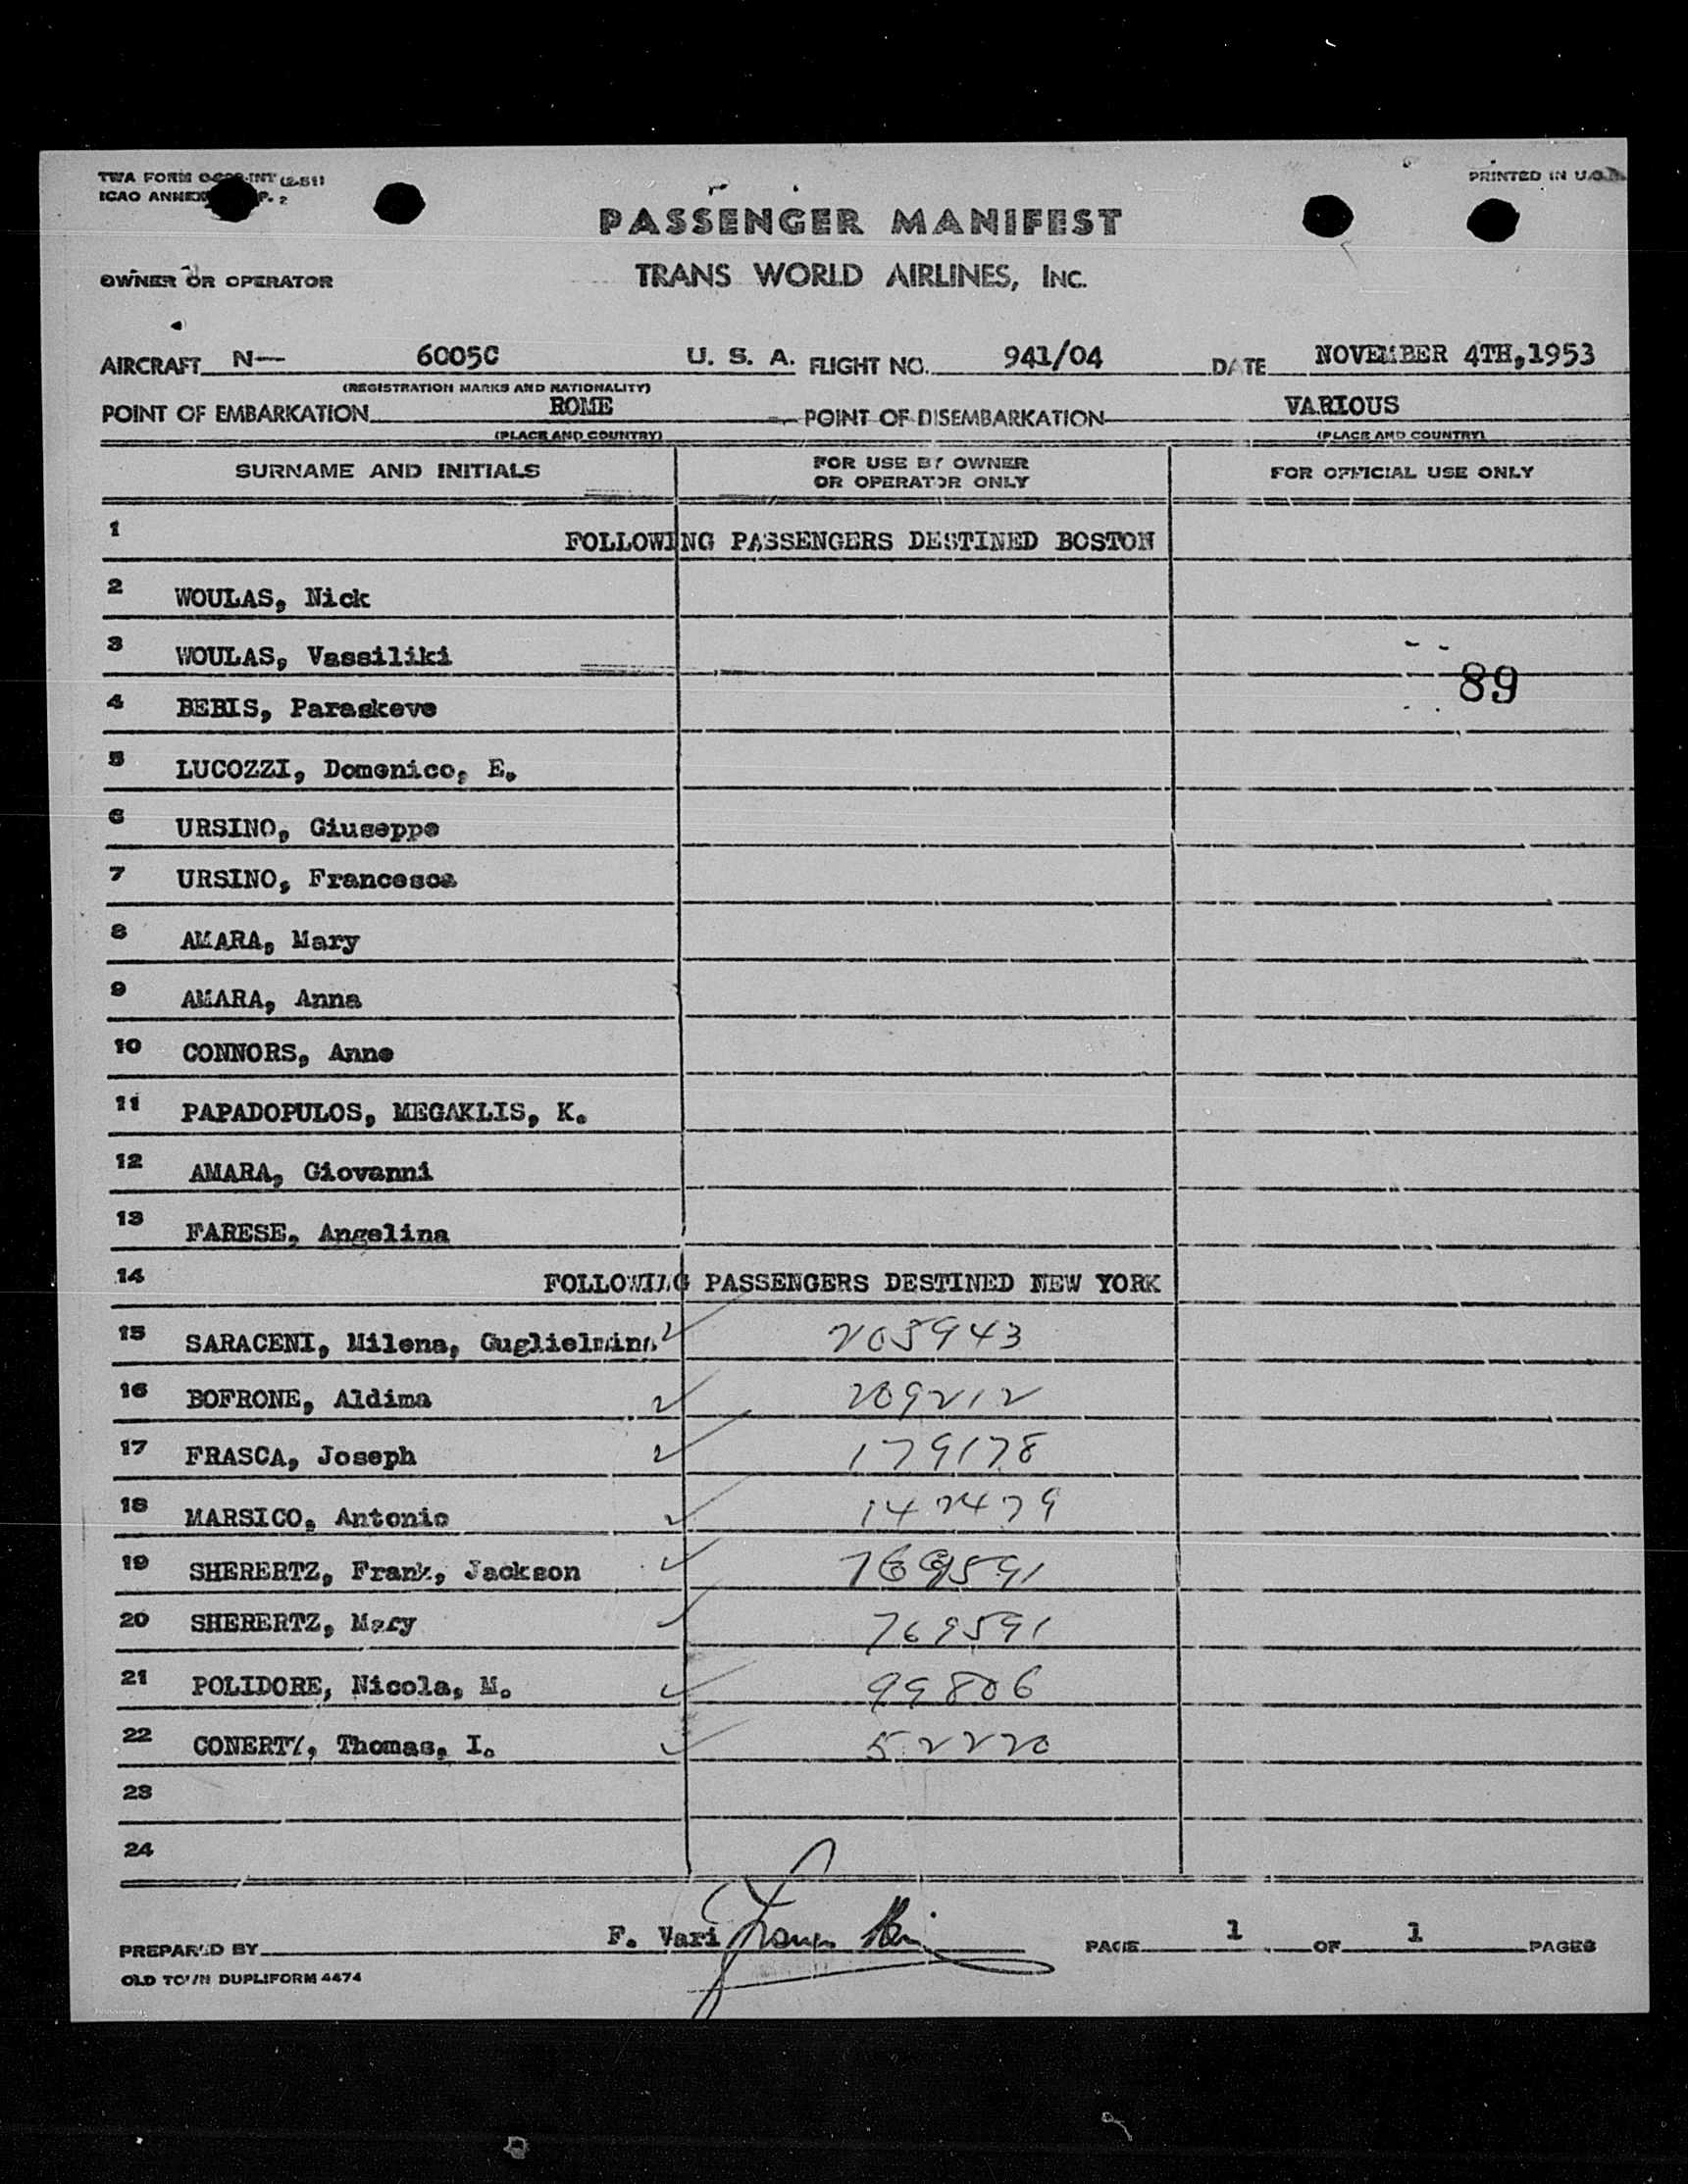 TWA FORM INT (2-51)
ICAO ANNEX P. 2
PRINTED IN U.S.A.
PASSENGER MANIFEST
OWNER OR OPERATOR
TRANS WORLD AIRLINES, INC.
AIRCRAFT N— 6005C U. S. A. FLIGHT NO. 941/04 DATE NOVEMBER 4TH,1953
(REGISTRATION MARKS AND NATIONALITY)
POINT OF EMBARKATION ROME POINT OF DISEMBARKATION VARIOUS
(PLACE AND COUNTRY) (PLACE AND COUNTRY)
SURNAME AND INITIALS FOR USE BY OWNER OR OPERATOR ONLY FOR OFFICIAL USE ONLY
1 FOLLOWING PASSENGERS DESTINED BOSTON
2 WOULAS, Nick
3 WOULAS, Vassiliki
89
4 BEBIS, Paraskeve
5 LUCOZZI, Domenico, E.
6 URSINO, Giuseppe
7 URSINO, Francesca
8 AMARA, Mary
9 AMARA, Anna
10 CONNORS, Anne
11 PAPADOPULOS, MEGAKLIS, K.
12 AMARA, Giovanni
13 FARESE, Angelina
14 FOLLOWING PASSENGERS DESTINED NEW YORK
15 SARACENI, Milena, Guglielmina 205943
16 BOFRONE, Aldima 209212
17 FRASCA, Joseph 179178
18 MARSICO, Antonio 147479
19 SHERERTZ, Frank, Jackson 769591
20 SHERERTZ, Mary 769591
21 POLIDORE, Nicola, M. 99806
22 CONERTY, Thomas, I. 52220
23
24
PREPARED BY F. Vari PAGE 1 OF 1 PAGES
OLD TOWN DUPLIFORM 4474